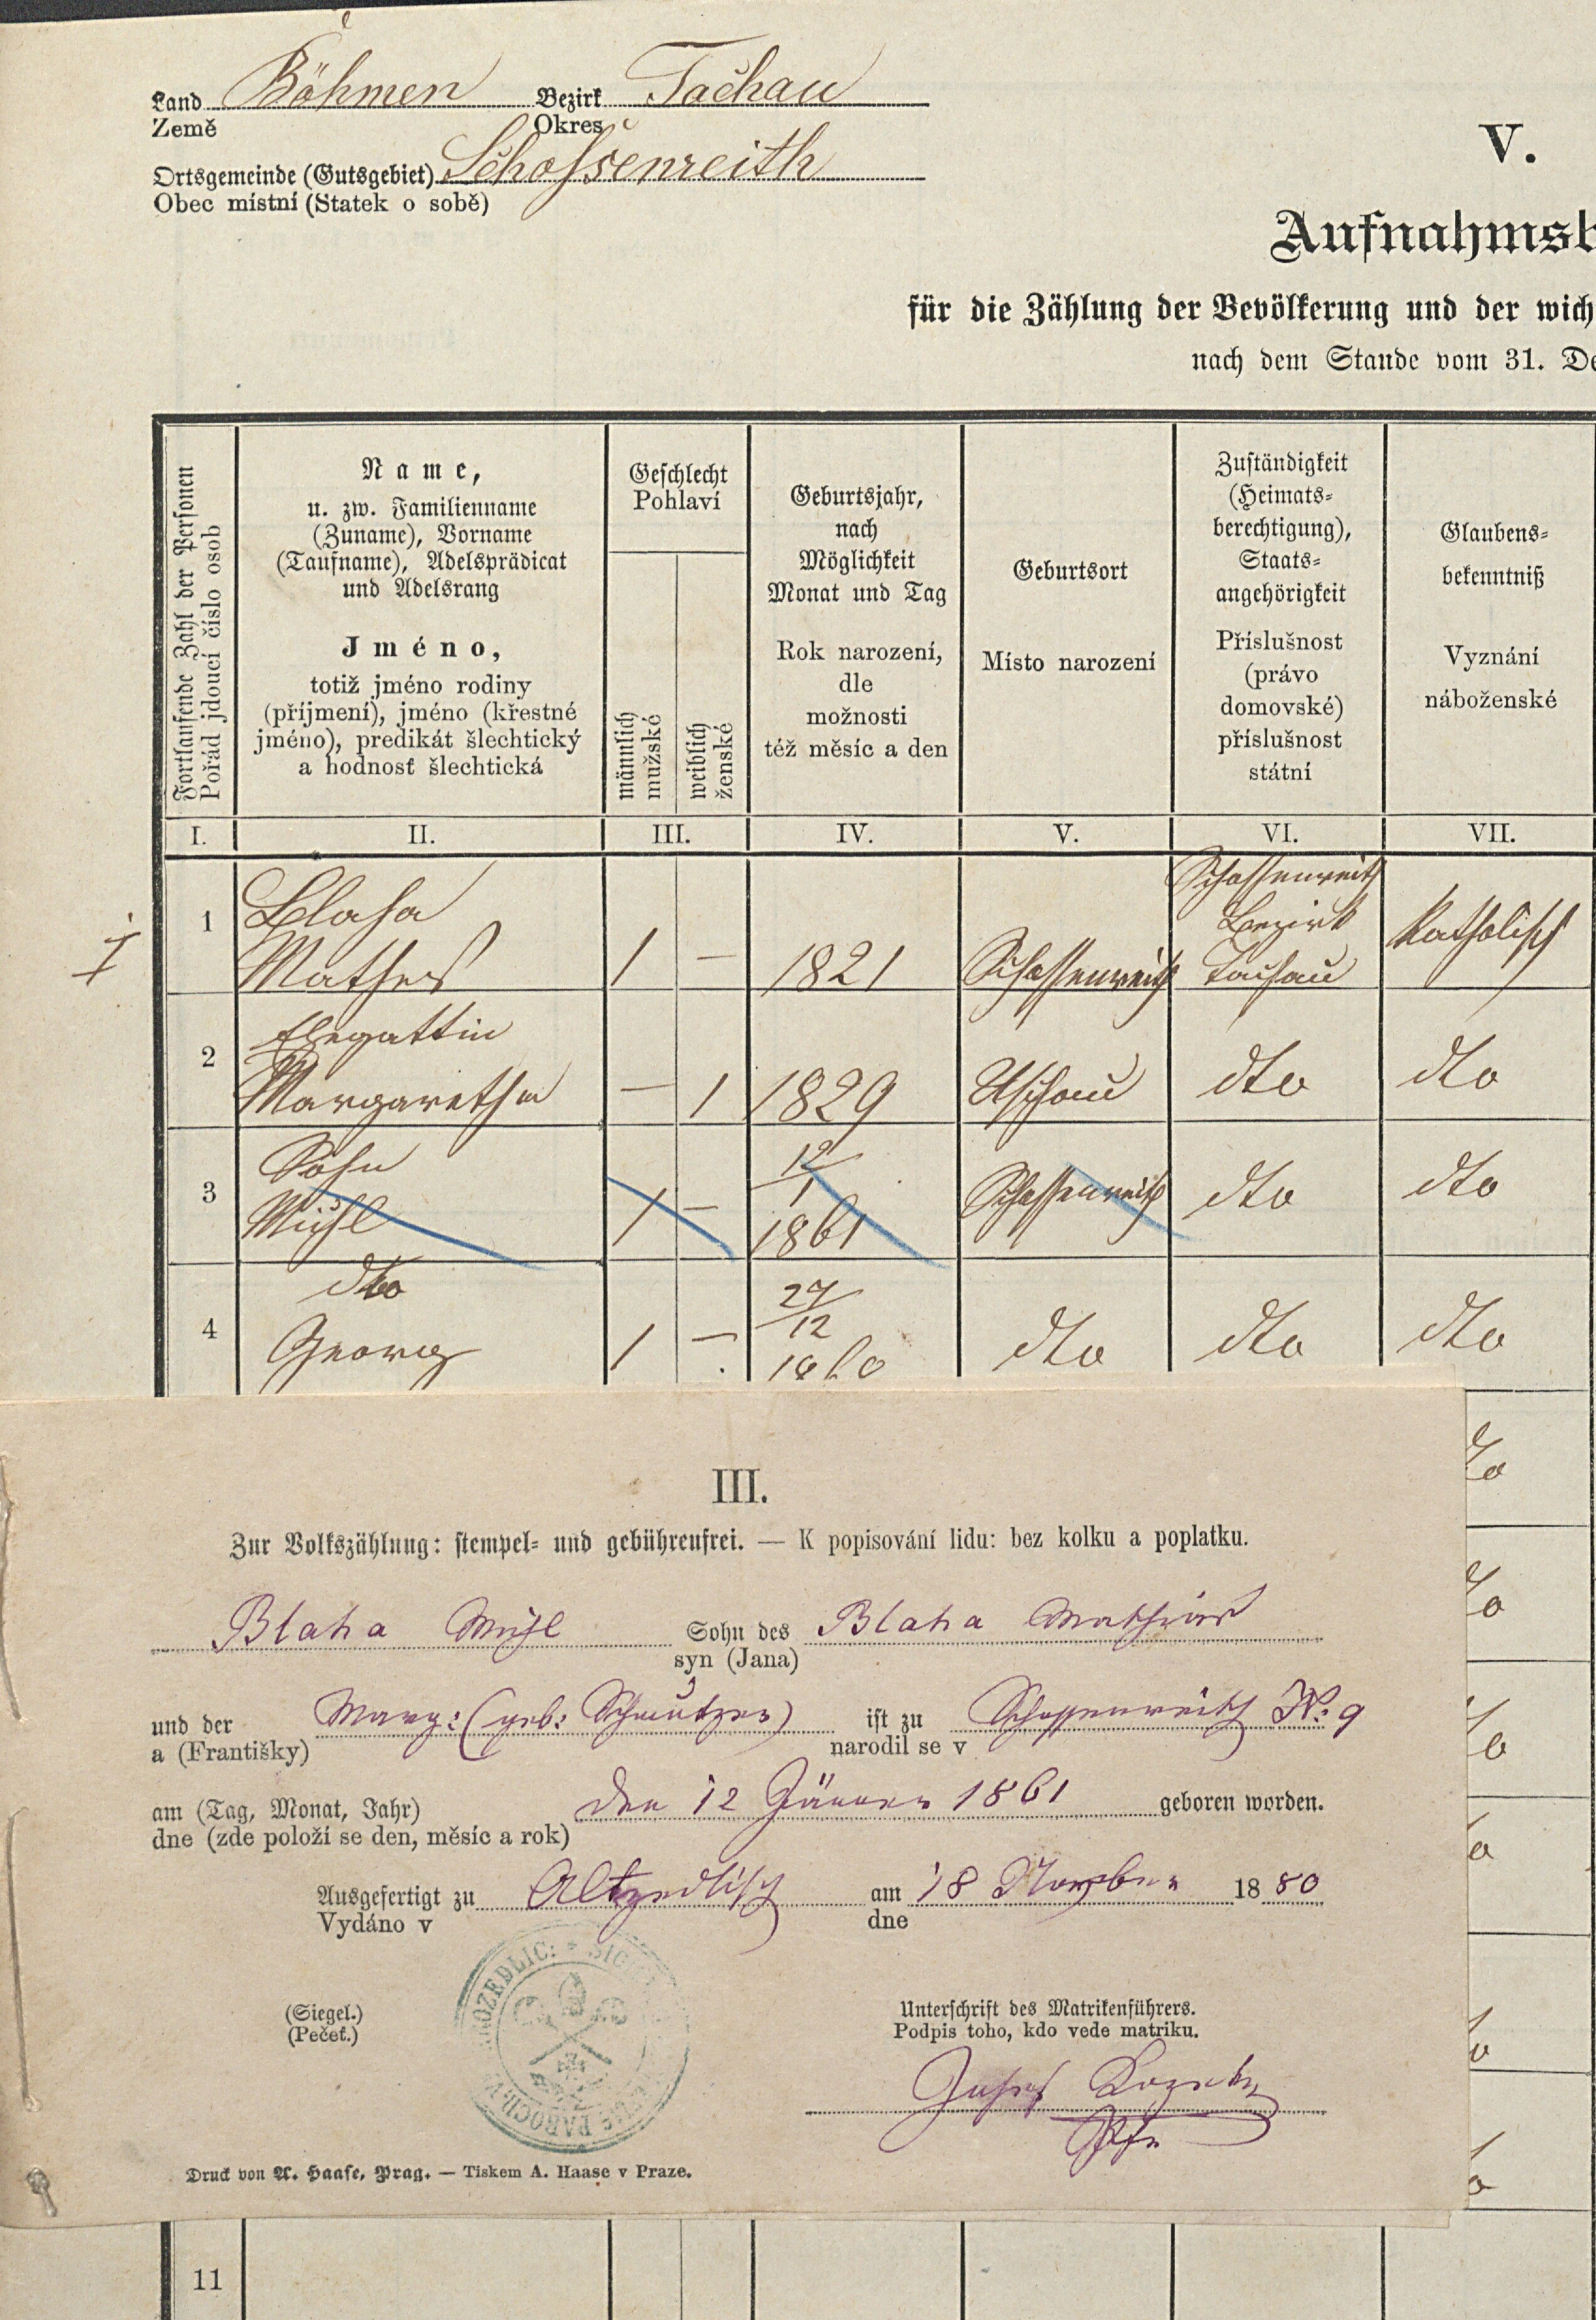 Land Böhmen Bezirk Tachau
Země Okres
Ortsgemeinde (Gutsgebiet) Schossenreith
Obec místní (Statek o sobě)
V.
Aufnahmsb
für die Zählung der Bevölkerung und der wich
nach dem Stande vom 31. De
Fortlaufende Zahl der Personen
Pořád jdoucí číslo osob
Name,
u. zw. Familienname
(Zuname), Vorname
(Taufname), Adelsprädicat
und Adelsrang
Jméno,
totiž jméno rodiny
(příjmení), jméno (křestné
jméno), predikát šlechtický
a hodnosť šlechtická
Geschlecht
Pohlaví
männlich
mužské
weiblich
ženské
Geburtsjahr,
nach
Möglichkeit
Monat und Tag
Rok narození,
dle
možnosti
též měsíc a den
Geburtsort
Místo narození
Zuständigkeit
(Heimats-
berechtigung),
Staats-
angehörigkeit
Příslušnost
(právo
domovské)
příslušnost
státní
Glaubens-
bekenntniß
Vyznání
náboženské
I. II. III. IV. V. VI. VII.
1 Blaha
Mathes 1 — 1821 Schossenreith
Schossenreith
Bezirk
Tachau
Katholisch
2 Ehegattin
Margaretha — 1 1829 Uschau dto dto
3 Sohn
Michl 1 — 12/1 1861 Schossenreith dto dto
4 dto
Georg 1 — 24/12 1860 dto dto dto
III.
Zur Volkszählung: stempel- und gebührenfrei. — K popisování lidu: bez kolku a poplatku.
Blaha Michl Sohn des Blaha Mathias
syn (Jana)
und der Marg: (geb: Schmutzer) ist zu Schossenreith N: 9
a (Františky) narodil se v
am (Tag, Monat, Jahr) den 12 Jänner 1861 geboren worden.
dne (zde položí se den, měsíc a rok)
Ausgefertigt zu Altzedlisch am 18 1880
Vydáno v dne
(Siegel.)
(Pečeť.)
Unterschrift des Matrikenführers.
Podpis toho, kdo vede matriku.
Josef
Druck von A. Haase, Prag. — Tiskem A. Haase v Praze.
11